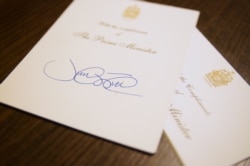 With the Compliments
of
The Prime Minister
the Compliments
of
Minister